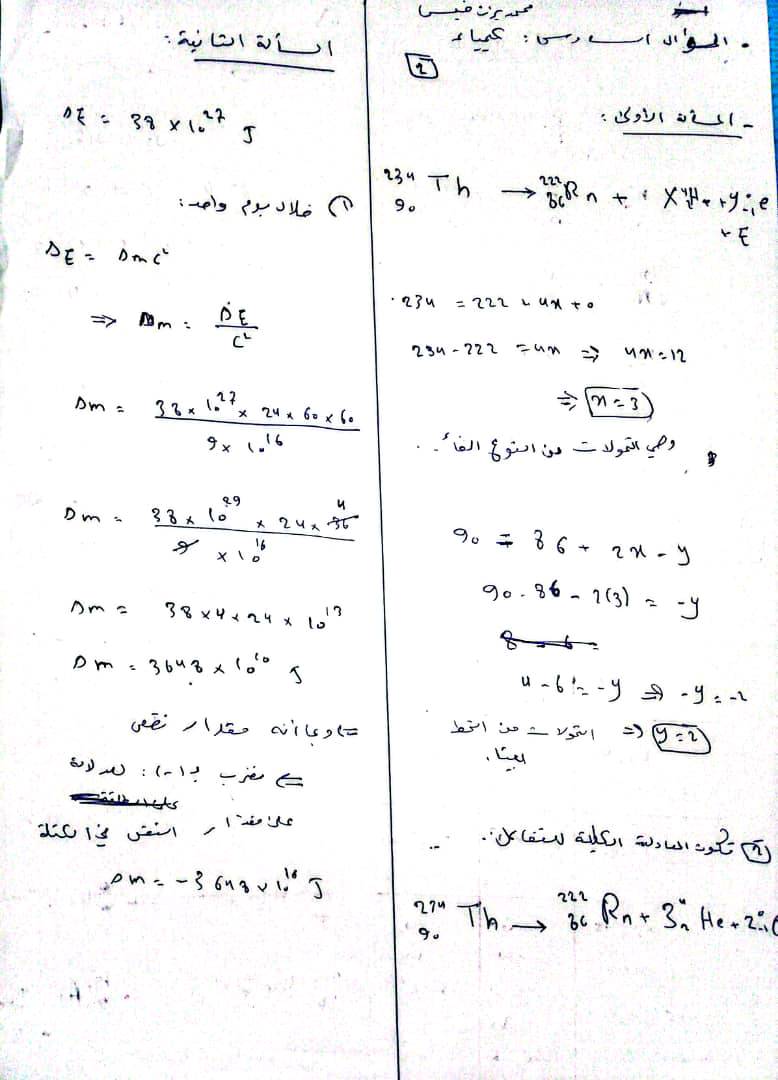 السؤال السادس: كيمياء
2
- المسألة الأولى:
²³⁴₉₀Th → ²²²₈₆Rn + x⁴₂He + y⁰₋₁e
+ E
234 = 222 + 4x + 0
234 - 222 = 4x ⇒ 4x = 12
⇒ x = 3
وهي التحولات من النوع ألفا.
90 = 86 + 2x - y
90 - 86 - 2(3) = -y
4 - 6 = -y ⇒ -y = -2
⇒ y = 2 التحولات من النمط
بيتا.
2 تكون المعادلة الكلية للتفاعل:
²³⁴₉₀Th → ²²²₈₆Rn + 3⁴₂He + 2⁰₋₁e
المسألة الثانية:
ΔE = 38 × 10²⁷ J
1) خلال يوم واحد:
ΔE = Δm c²
⇒ Δm = ΔE / c²
Δm = 38 × 10²⁷ × 24 × 60 × 60 / 9 × 10¹⁶
Δm = 38 × 10²⁹ × 24 × 36 4 / 9 × 10¹⁶
Δm = 38 × 4 × 24 × 10¹³
Δm = 3648 × 10¹⁰ J
وبما أنه مقدار نقص
⇐ نضرب بـ (-1): للدلالة
على مقدار النقص في الكتلة
Δm = -3648 × 10¹⁰ J